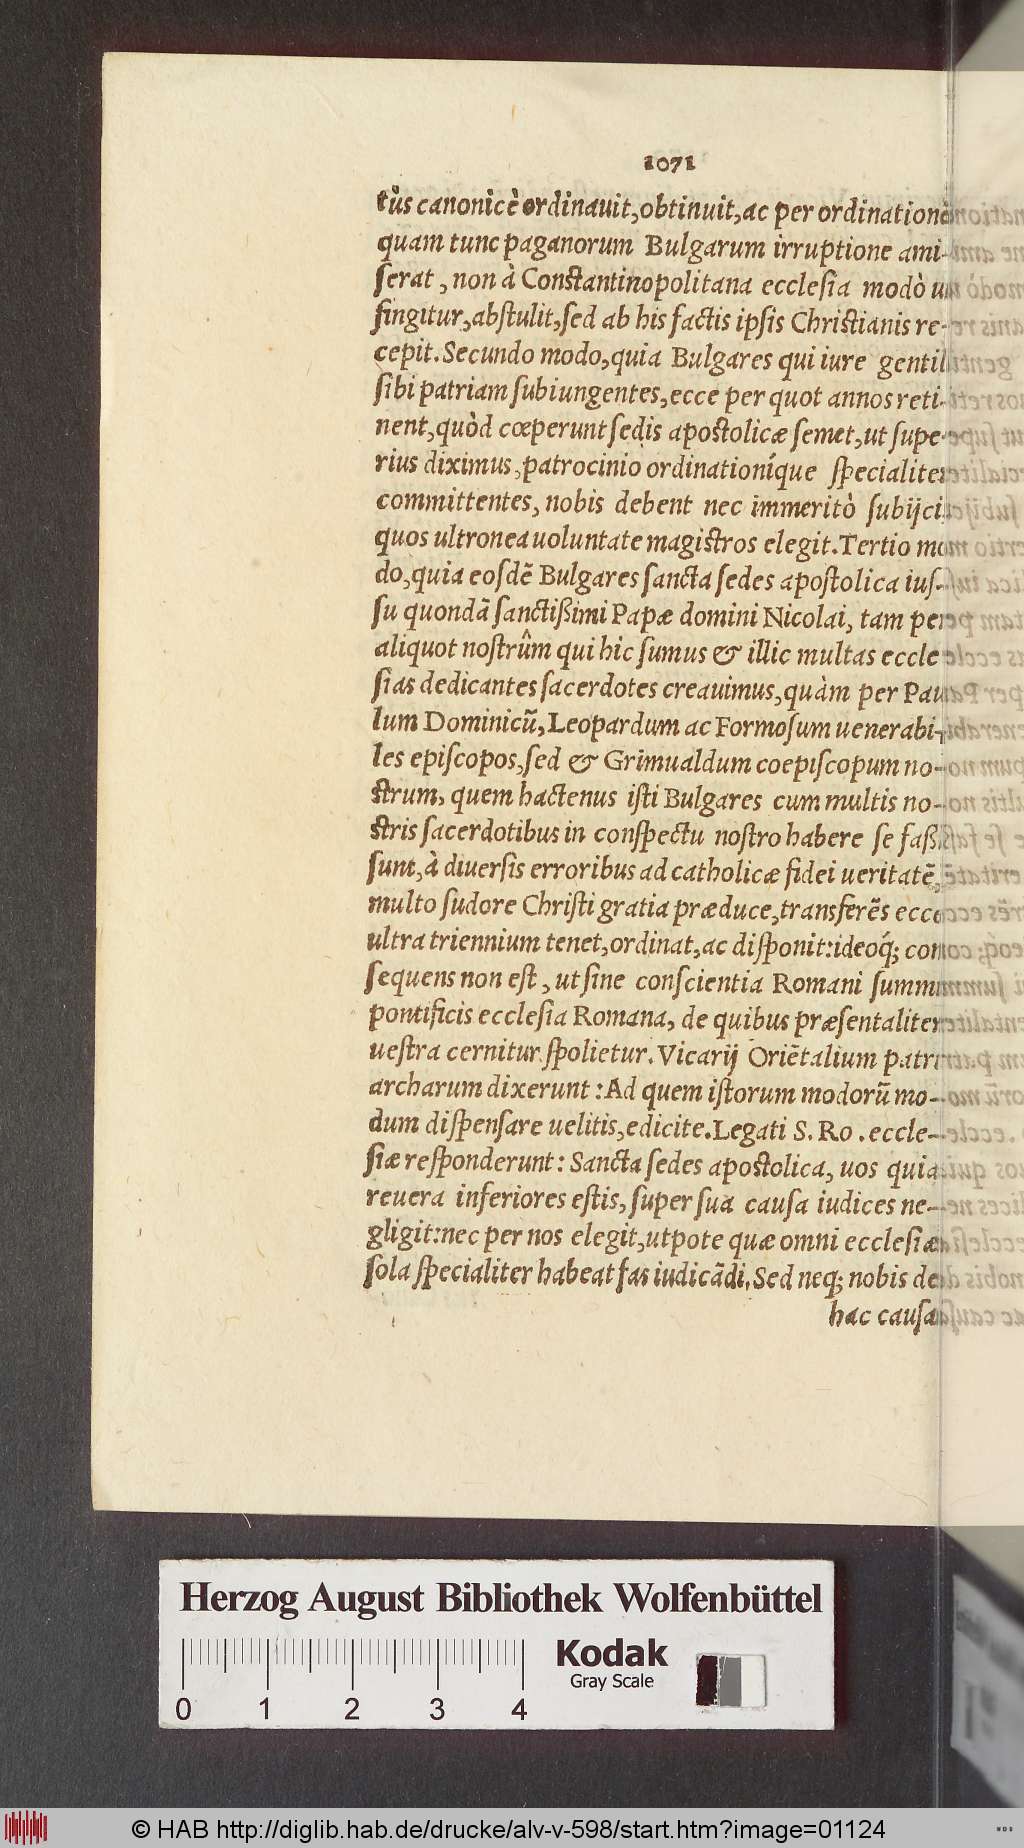 1071
tùs canonicè ordinauit, obtinuit, ac per ordinationē
quam tunc paganorum Bulgarum irruptione ami-
serat, non à Constantinopolitana ecclesia modò ut
fingitur, abstulit, sed ab his factis ipsis Christianis re-
cepit. Secundo modo, quia Bulgares qui iure gentili
sibi patriam subiungentes, ecce per quot annos reti-
nent, quòd cœperunt sedis apostolicæ semet, ut supe-
rius diximus, patrocinio ordinationíque specialiter
committentes, nobis debent nec immeritò subijci
quos ultronea uoluntate magistros elegit. Tertio mo
do, quia eosdē Bulgares sancta sedes apostolica ius-
su quondā sanctißimi Papæ domini Nicolai, tam per
aliquot nostrûm qui hic sumus & illic multas eccle
sias dedicantes sacerdotes creauimus, quàm per Pau
lum Dominicū, Leopardum ac Formosum uenerabi-
les episcopos, sed & Grimualdum coepiscopum no-
strum, quem hactenus isti Bulgares cum multis no-
stris sacerdotibus in conspectu nostro habere se faßi
sunt, à diuersis erroribus ad catholicæ fidei ueritatē,
multo sudore Christi gratia præduce, transferēs ecce
ultra triennium tenet, ordinat, ac disponit: ideoq́; con
sequens non est, ut sine conscientia Romani summi
pontificis ecclesia Romana, de quibus præsentaliter
uestra cernitur spolietur. Vicarij Oriētalium patri
archarum dixerunt: Ad quem istorum modorū mo-
dum dispensare uelitis, edicite. Legati S. Ro. eccle-
siæ responderunt: Sancta sedes apostolica, uos quia
reuera inferiores estis, super sua causa iudices ne-
gligit: nec per nos elegit, utpote quæ omni ecclesiæ
sola specialiter habeat fas iudicādi. Sed neq; nobis de
hac causa
Herzog August Bibliothek Wolfenbüttel
Kodak
Gray Scale
0 1 2 3 4
© HAB http://diglib.hab.de/drucke/alv-v-598/start.htm?image=01124